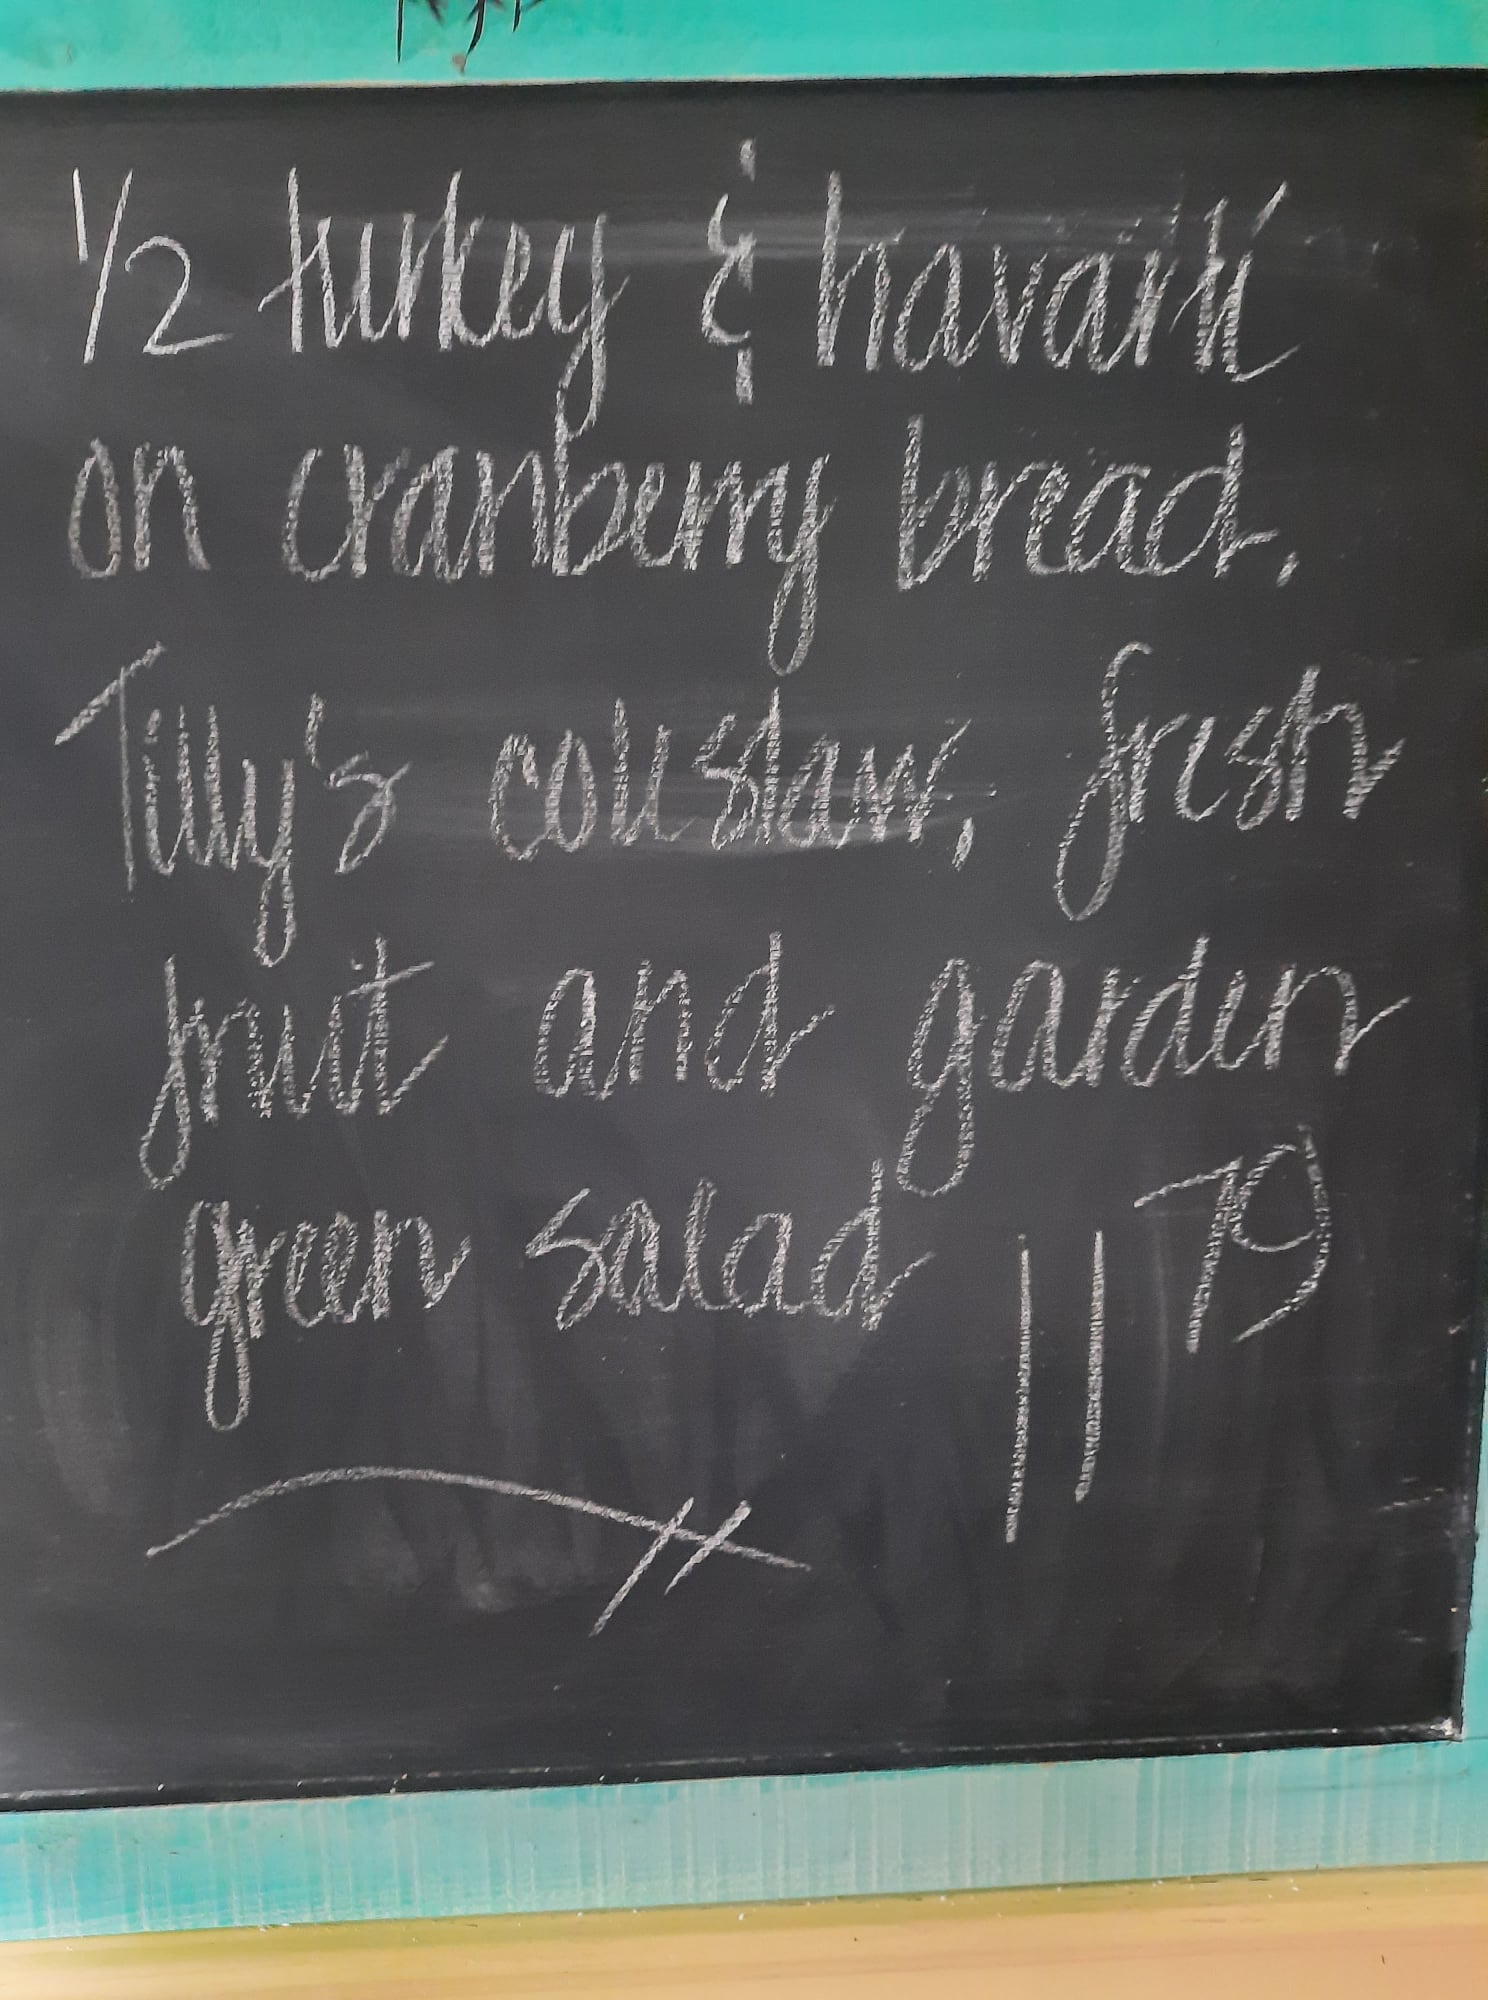 1/2 turkey & havarti
on cranberry bread.
Tilly's coleslaw, fresh
fruit and garden
green salad 11 79